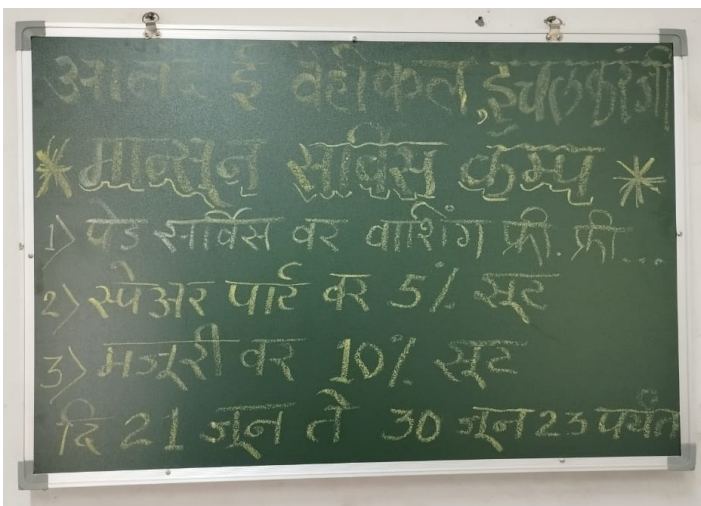 आनंद ई व्हेईकल, इचलकरंजी
* मान्सून सर्विस कॅम्प *
1) पेड सर्विस वर वाशिंग फ्री. फ्री...
2) स्पेअर पार्ट वर 5% सूट
3) मजूरी वर 10% सूट
दि 21 जून ते 30 जून 23 पर्यंत